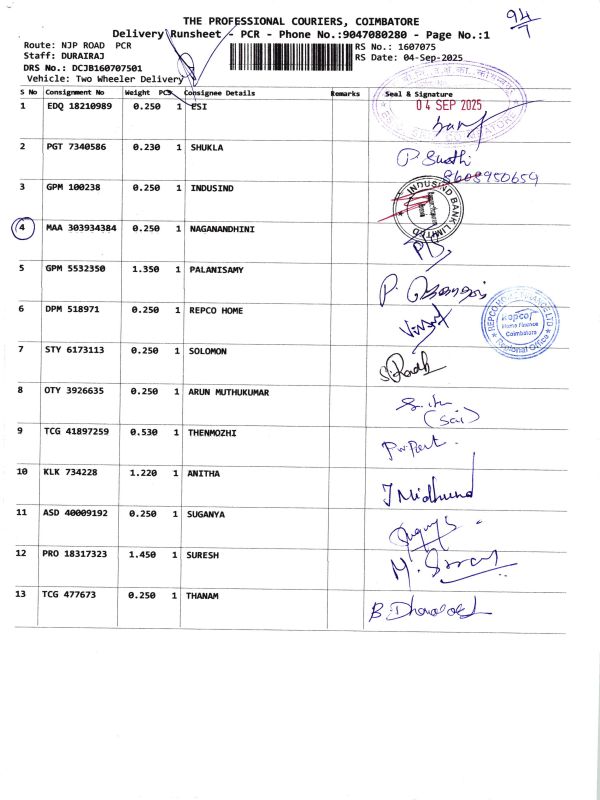 94/7
THE PROFESSIONAL COURIERS, COIMBATORE
Delivery Runsheet - PCR - Phone No.:9047080280 - Page No.:1
Route: NJP ROAD PCR
RS No.: 1607075
Staff: DURAIRAJ
RS Date: 04-Sep-2025
DRS No.: DCJB160707501
Vehicle: Two Wheeler Delivery
S No Consignment No Weight PCS Consignee Details Remarks Seal & Signature
04 SEP 2025
1 EDQ 18210989 0.250 1 ESI
2 PGT 7340586 0.230 1 SHUKLA
8608950659
3 GPM 100238 0.250 1 INDUSIND
INDUSIND BANK LIMITED
4 MAA 303934384 0.250 1 NAGANANDHINI
5 GPM 5532350 1.350 1 PALANISAMY
6 DPM 518971 0.250 1 REPCO HOME
REPCO HOME FINANCE LTD
Repco
Home Finance
Coimbatore
Regional Office
7 STY 6173113 0.250 1 SOLOMON
8 OTY 3926635 0.250 1 ARUN MUTHUKUMAR
(Sai)
9 TCG 41897259 0.530 1 THENMOZHI
10 KLK 734228 1.220 1 ANITHA
11 ASD 40009192 0.250 1 SUGANYA
12 PRO 18317323 1.450 1 SURESH
13 TCG 477673 0.250 1 THANAM